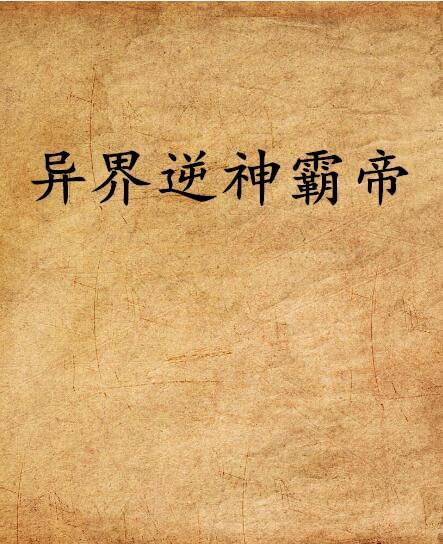 异界逆神霸帝